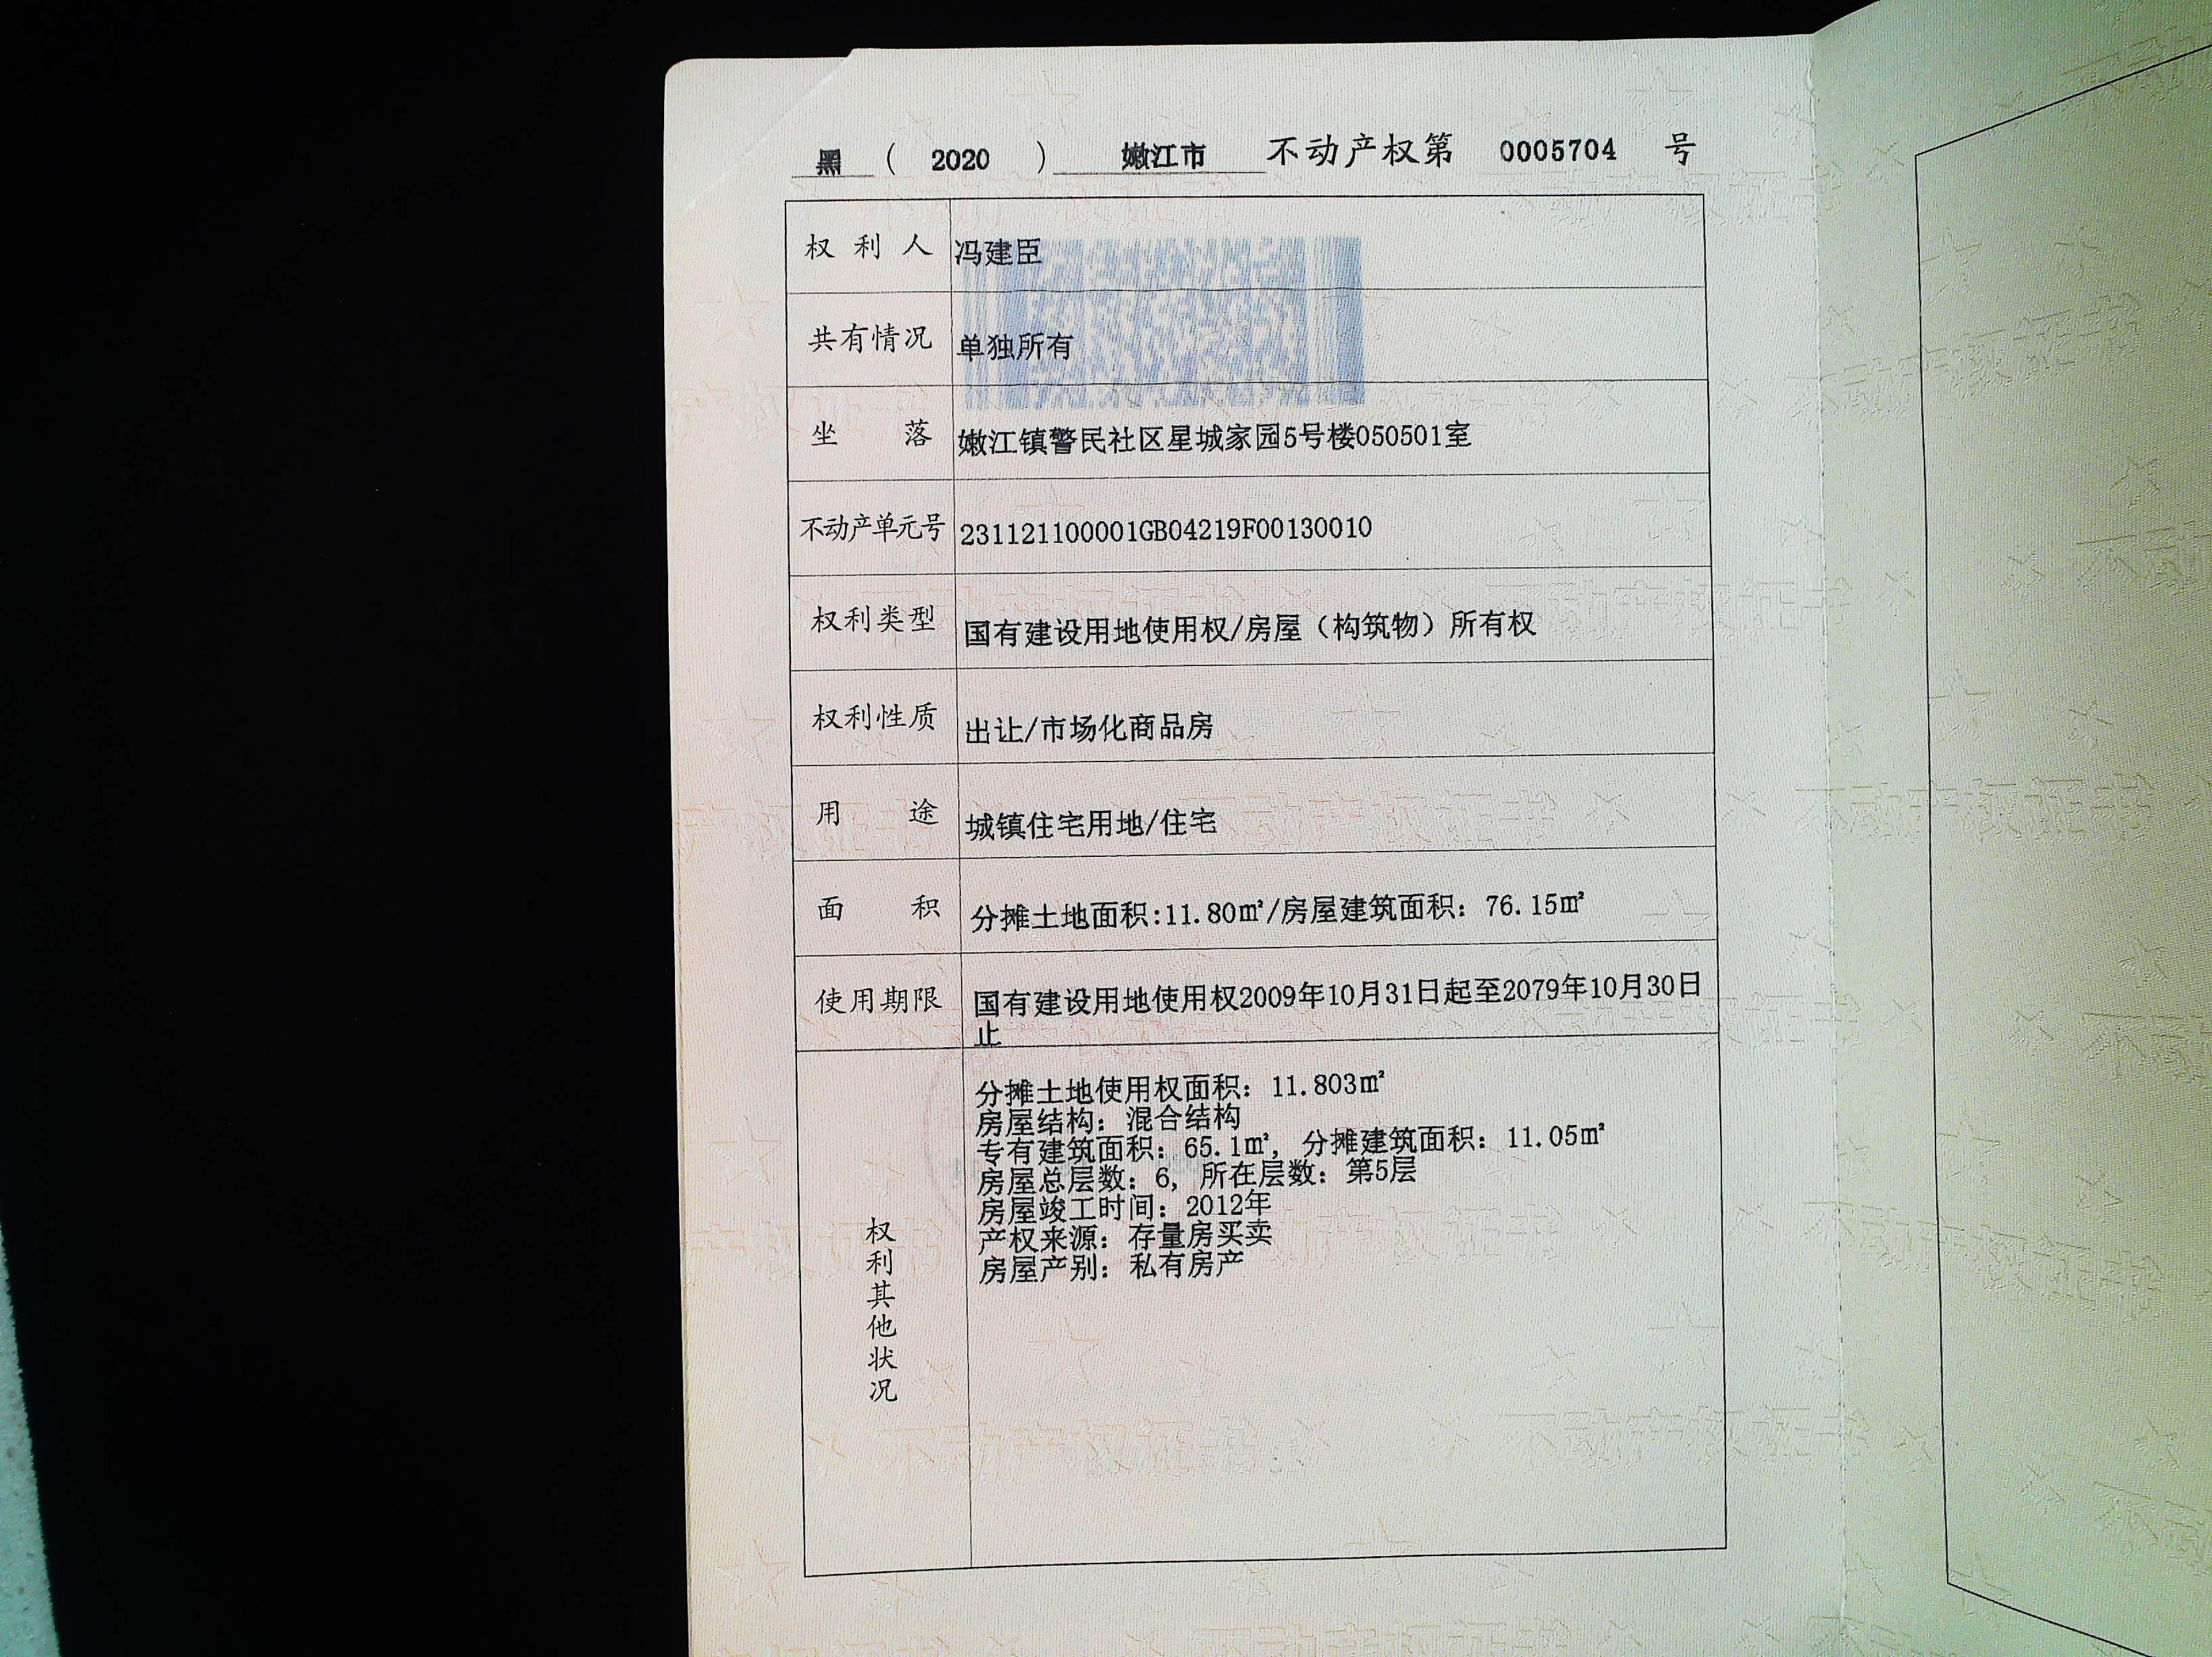 黑 ( 2020 ) 嫩江市 不动产权第 0005704 号
权利人 冯建臣
共有情况 单独所有
坐落 嫩江镇警民社区星城家园5号楼050501室
不动产单元号 231121100001GB04219F00130010
权利类型 国有建设用地使用权/房屋（构筑物）所有权
权利性质 出让/市场化商品房
用途 城镇住宅用地/住宅
面积 分摊土地面积:11.80㎡/房屋建筑面积：76.15㎡
使用期限 国有建设用地使用权2009年10月31日起至2079年10月30日
止
权利其他状况
分摊土地使用权面积：11.803㎡
房屋结构：混合结构
专有建筑面积：65.1㎡，分摊建筑面积：11.05㎡
房屋总层数：6，所在层数：第5层
房屋竣工时间：2012年
产权来源：存量房买卖
房屋产别：私有房产